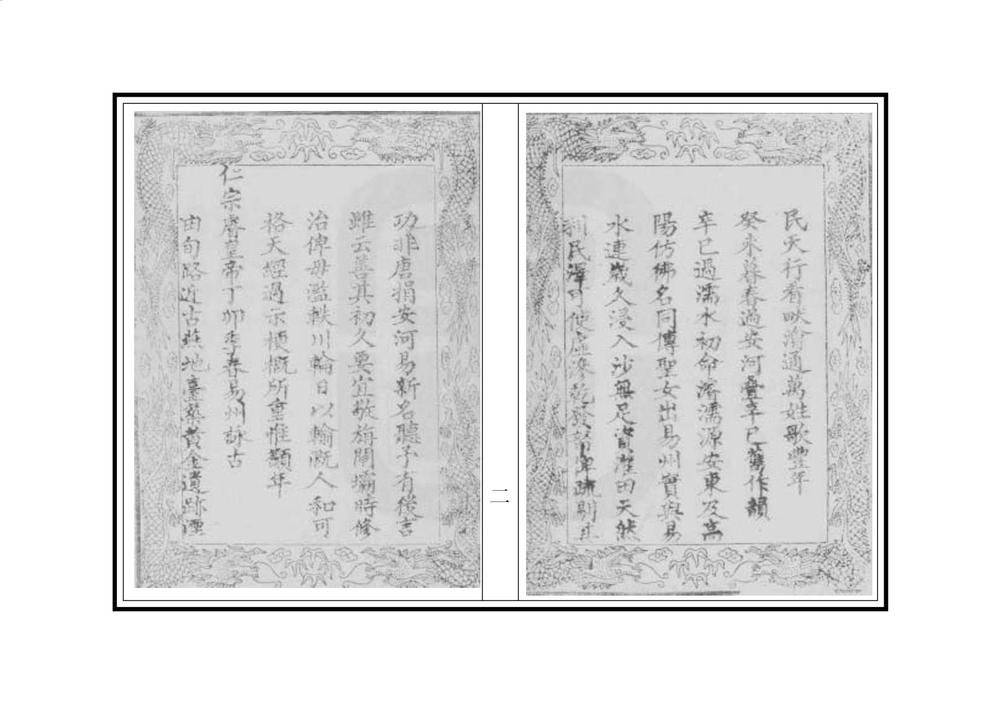 民天行看畎澮通萬姓歌豐年
癸未暮春過安河疊辛巳舊作韻
辛巳過濡水初命濬濡源安東及高
陽仿佛名同博聖女出易州實與易
水連歲久浸入沙無足資灌田天然
利民澤可使虛
疏剔其
二
功非唐捐安河易新名聽予有後言
雖云善其初久要宜敬旃閘壩時修
治俾毋濫軼川輪日以輸溉人和可
格天經過示梗概所重惟顯年
仁宗睿皇帝丁卯季春易州詠古
由旬路近古燕地臺築黃金遺跡湮